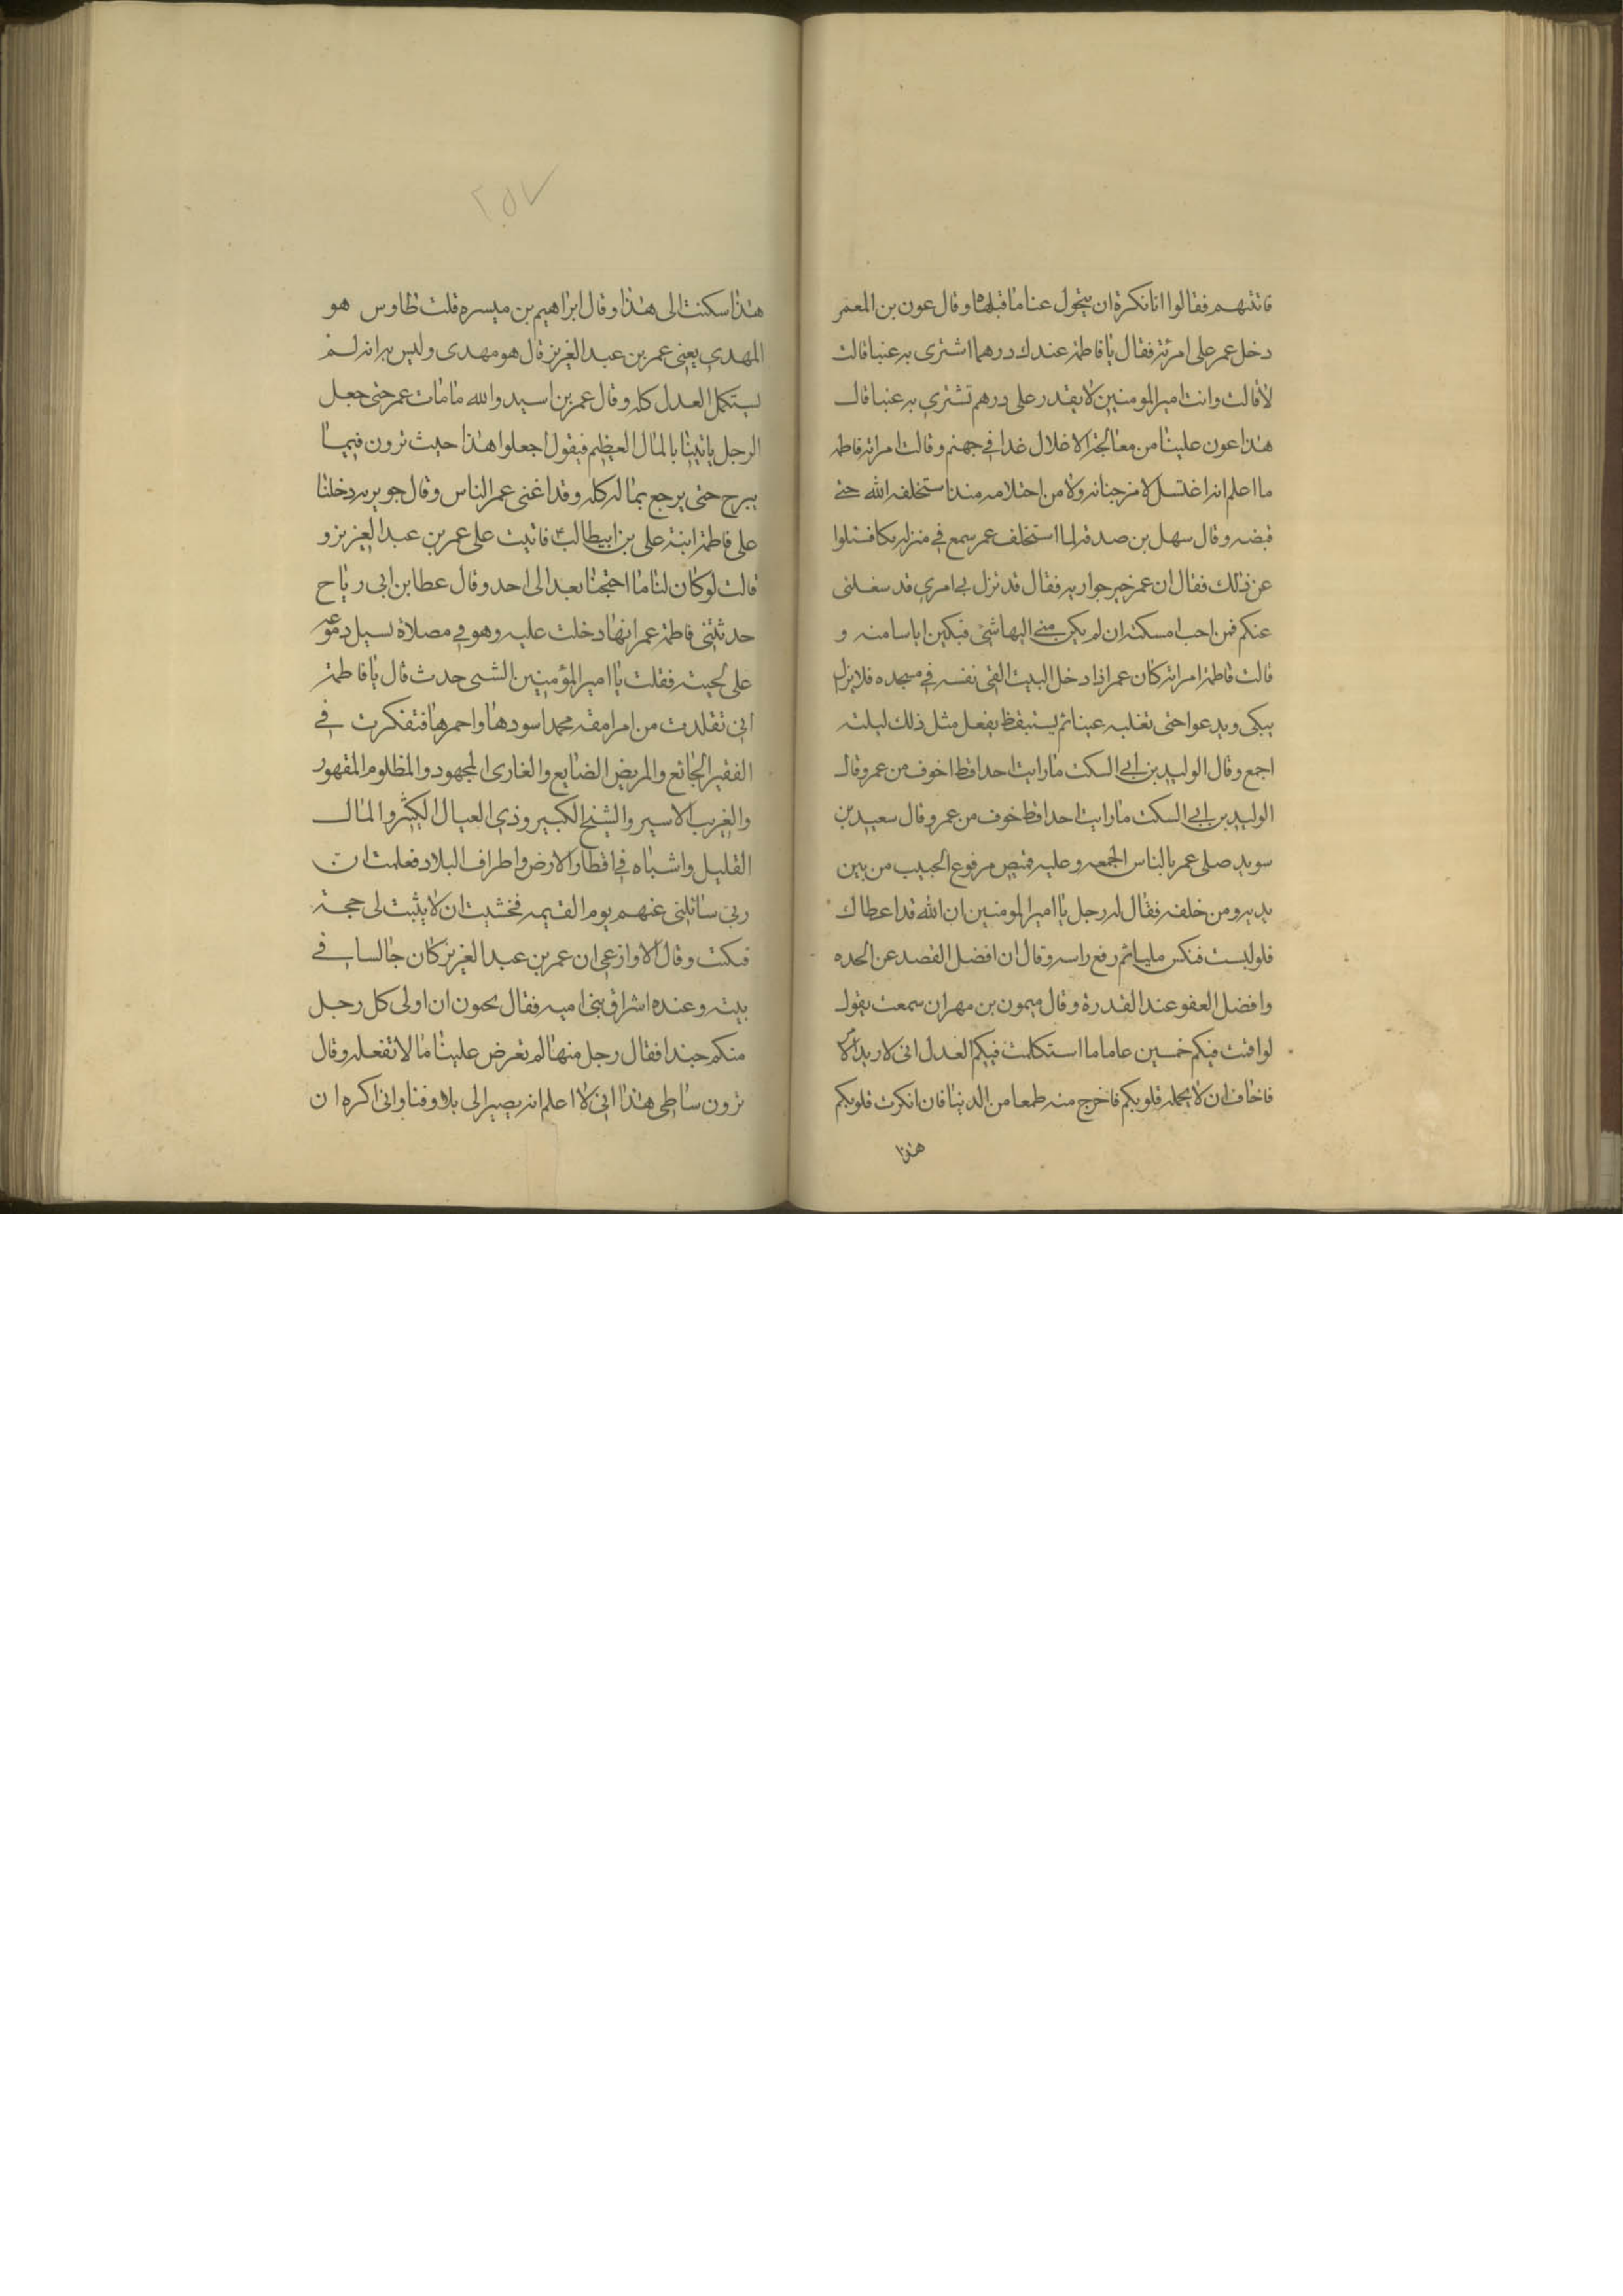 فاتتهم فقالوا انا نكرة ان يتحول عنا ما قبلها وقال عون بن المعمر
دخل عمر على امرئته فقال يا فاطمة عندك درهما اشترى به عنبا قالت
لا قالت وانت امير المومنين لا يقدر على درهم تشتري به عنبا قال
هذا عون علينا من معالجة الاغلال غدا في جهنم وقالت امراته فاطمه
ما اعلم انه اغتسل لا من جنابه ولا من احتلامه منذ استخلفه الله حتى
قبضه وقال سهل بن صدقه لما استخلف عمر سمع في منزله بكا فسئلوا
عن ذلك فقال ان عمر خير جواريه فقال قد نزل بي امري قد شغلنى
عنكم فمن احب امسكته ان لم يكن منى اليها شئ فبكين اياسا منه و
قالت فاطمة امراته كان عمر اذا دخل البيت القى نفسه في مسجده فلا يزل
يبكى ويدعوا حتى تغلبه عيناه ثم يستيقظ يفعل مثل ذلك ليلته
اجمع وقال الوليد بن ابي السكت ما رايت احدا قط اخوف من عمر وقال
الوليد بن ابي السكت ما رايت احدا قط خوف من عمر وقال سعيد بن
سويد صلى عمر بالناس الجمعه وعليه قميص مرفوع الجيب من بين
يديه ومن خلفه فقال له رجل يا امير المومنين ان الله قد اعطاك
فلو لبست فنكس مليا ثم رفع راسه وقال ان افضل القصد عن الحده
وافضل العفو عند القدرة وقال ميمون بن مهران سمعت يقول
لو اقمت فيكم خمسين عاما ما استكملت فيكم العدل انى لاريد الامر
فاخاف ان لا يحمله قلوبكم فاخرج منه طمعا من الدنيا فان انكرت قلوبكم
هذا
٢٥٧
هذا سكنت الى هذا وقال ابراهيم بن ميسره قلت طاوس هو
المهدي يعني عمر بن عبد العزيز قال هو مهدى وليس به انه لم
يستكمل العدل كله وقال عمر بن اسيد والله ما مات عمر حتى جعل
الرجل ياتينا بالمال العظيم فيقول اجعلوا هذا حيث ترون فيما
يبرح حتى يرجع بماله كله وقد اغنى عمر الناس وقال جويريه دخلنا
على فاطمة ابنة على بن ابيطالب ع فاثنيت على عمر بن عبد العزيز و
قالت لو كان لنا ما احتجنا بعد الى احد وقال عطا بن ابى رياح
حدثتنى فاطمة عمر انها دخلت عليه وهو في مصلاة تسيل دموعه
على لحيته فقلت يا امير المؤمنين الشى حدث قال يا فاطمة
انى تقلدت من امر امة محمد اسودها واحمرها فتفكرت في
الفقير الجائع والمريض الضايع والغارى المجهود والمظلوم المقهور
والغريب الاسير والشيخ الكبير وذي العيال الكثير والمال
القليل واشباه في اقطار الارض واطراف البلاد فعلمت ان
ربى سائلنى عنهم يوم القيمه فخشيت ان لا يثبت لى حجة
فبكت وقال الاوازعي ان عمر بن عبد العزيز كان جالسا في
بيته وعنده اشراق بنى اميه فقال تحون ان اولى كل رجل
منكم جندا فقال رجل منها لم تعرض علينا ما لا تفعله وقال
ترون ساطى هذا انى لا اعلم انه يصير الى بلا وفنا وانى اكره ان